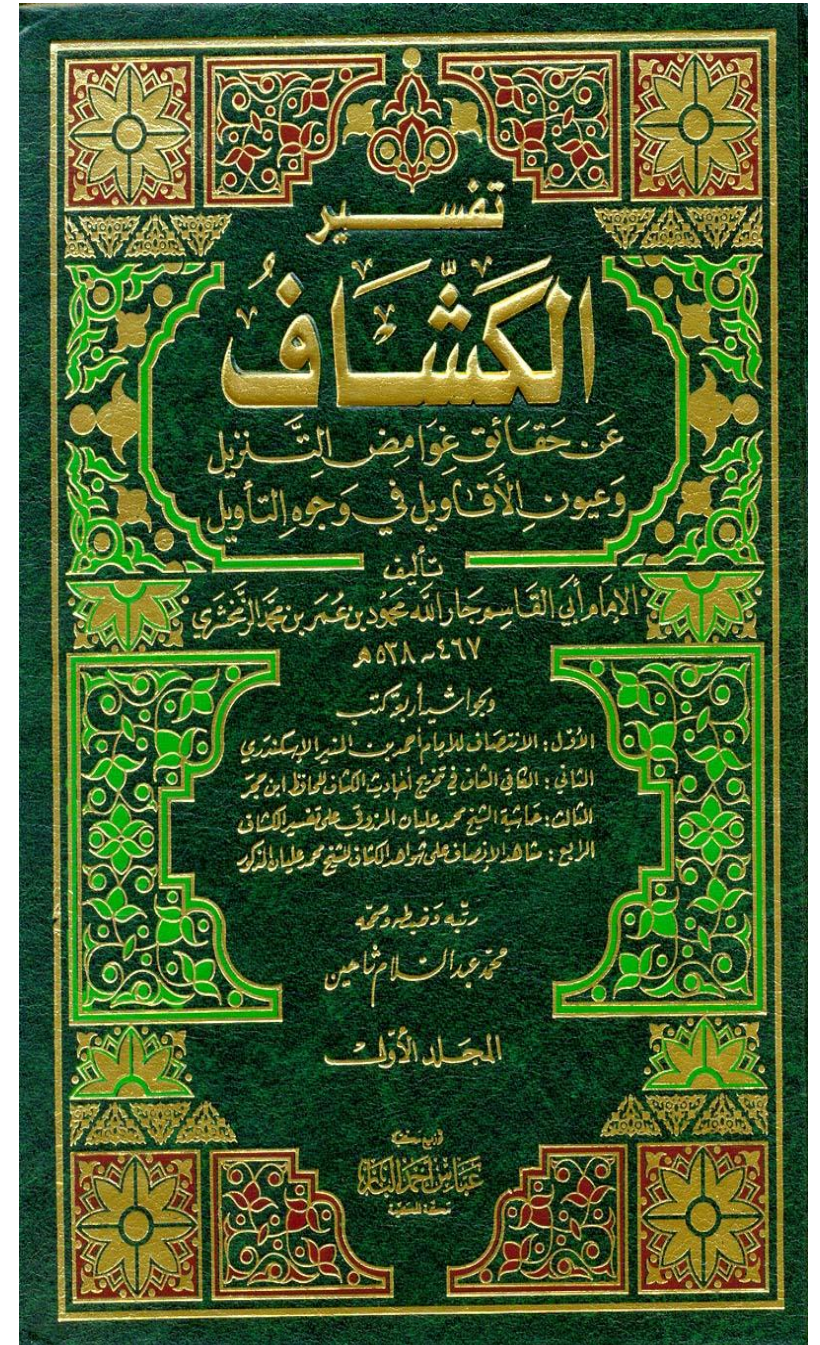 تفسير
الكَشَّافُ
عَن حَقَائِق غَوَامِض التَّنزيل
وَعيون الأَقَاويل في وجوه التأويل
تأليف
الإمَام أبي القَاسِم جَار الله محمود بن عُمَر بن محمَّد الزمخشري
٤٦٧ - ٥٣٨ هـ
وبحواشيه أربعة كتب
الأول : الانتصَاف للإمَام أحمد بن المنير الإسكندري
الثاني : الكافي الشاف في تخريج أحاديث الكشاف للحافظ ابن حجر
الثالث : حَاشية الشيخ محمد عليان المرزوقي على تفسير الكشاف
الرابع : مشاهد الإنصاف على شواهد الكشاف للشيخ محمد عليان المذكور
رتّبه وَضبطه وصحّحه
محمّد عبد السَّلام شاهين
المجَلد الأوّل
عبَّاس أحمَد البَاز
مكة المكرمة